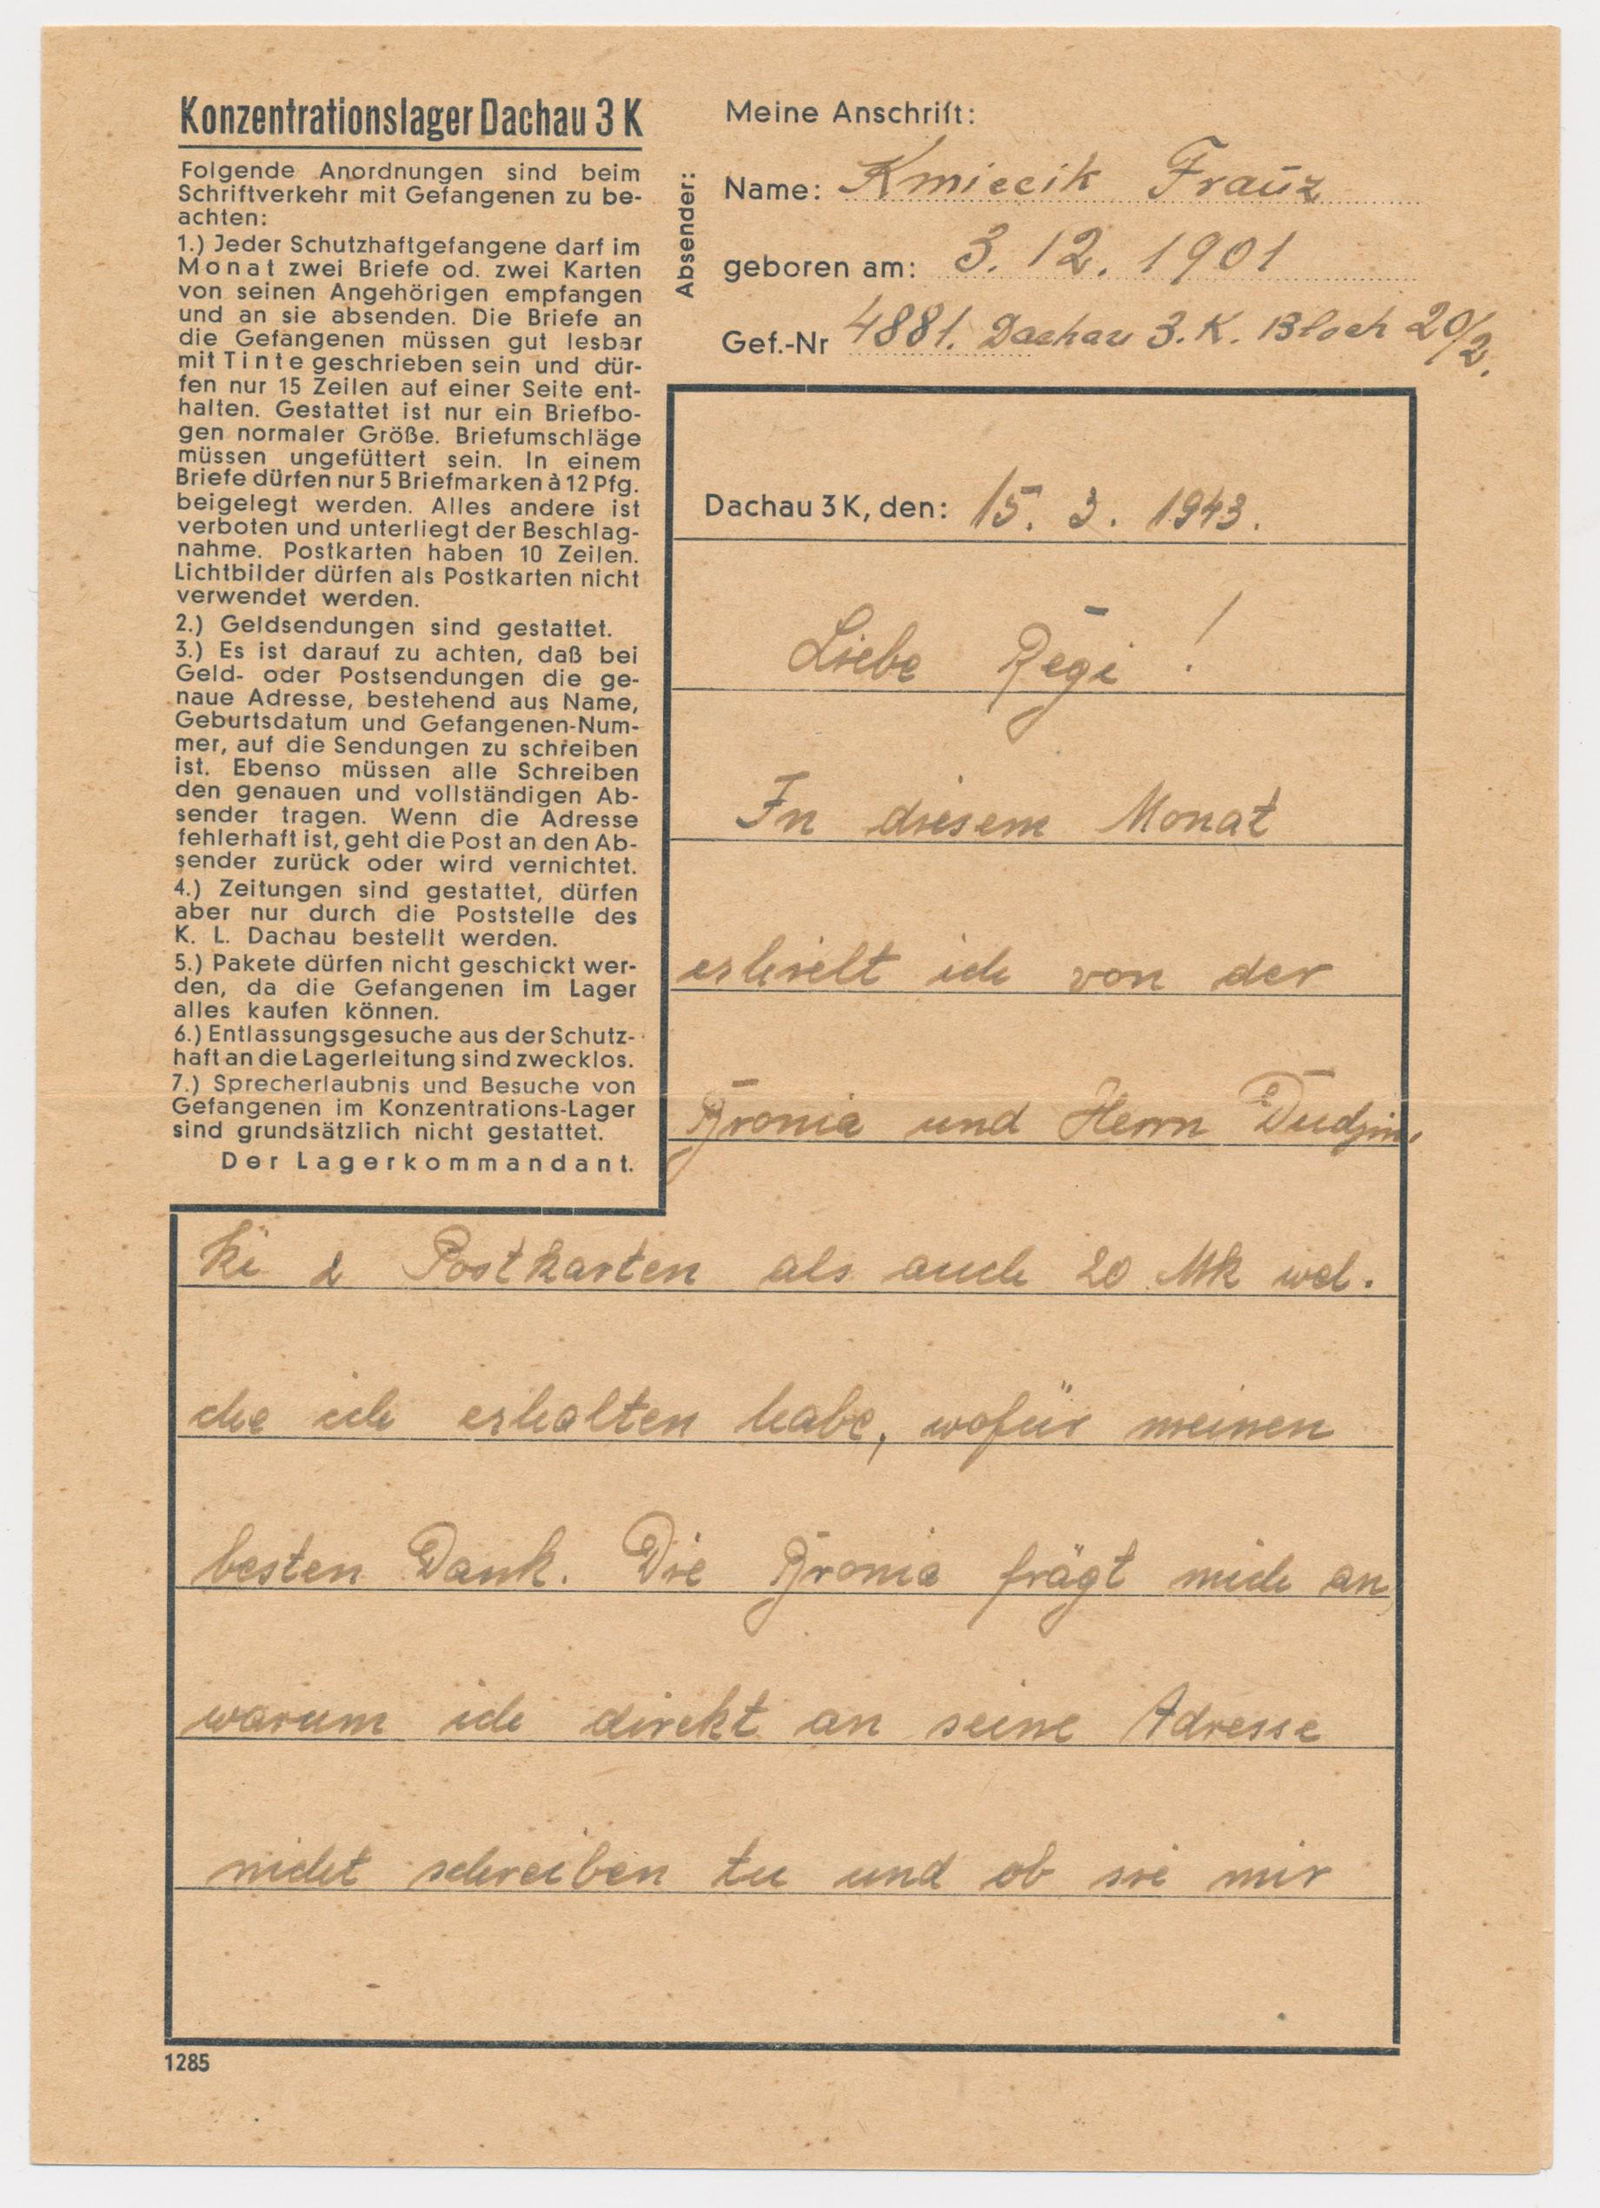 Konzentrationslager Dachau 3 K
Folgende Anordnungen sind beim
Schriftverkehr mit Gefangenen zu be-
achten:
1.) Jeder Schutzhaftgefangene darf im
Monat zwei Briefe od. zwei Karten
von seinen Angehörigen empfangen
und an sie absenden. Die Briefe an
die Gefangenen müssen gut lesbar
mit Tinte geschrieben sein und dür-
fen nur 15 Zeilen auf einer Seite ent-
halten. Gestattet ist nur ein Briefbo-
gen normaler Größe. Briefumschläge
müssen ungefüttert sein. In einem
Briefe dürfen nur 5 Briefmarken à 12 Pfg.
beigelegt werden. Alles andere ist
verboten und unterliegt der Beschlag-
nahme. Postkarten haben 10 Zeilen.
Lichtbilder dürfen als Postkarten nicht
verwendet werden.
2.) Geldsendungen sind gestattet.
3.) Es ist darauf zu achten, daß bei
Geld- oder Postsendungen die ge-
naue Adresse, bestehend aus Name,
Geburtsdatum und Gefangenen-Num-
mer, auf die Sendungen zu schreiben
ist. Ebenso müssen alle Schreiben
den genauen und vollständigen Ab-
sender tragen. Wenn die Adresse
fehlerhaft ist, geht die Post an den Ab-
sender zurück oder wird vernichtet.
4.) Zeitungen sind gestattet, dürfen
aber nur durch die Poststelle des
K. L. Dachau bestellt werden.
5.) Pakete dürfen nicht geschickt wer-
den, da die Gefangenen im Lager
alles kaufen können.
6.) Entlassungsgesuche aus der Schutz-
haft an die Lagerleitung sind zwecklos.
7.) Sprecherlaubnis und Besuche von
Gefangenen im Konzentrations-Lager
sind grundsätzlich nicht gestattet.
Der Lagerkommandant.
Absender:
Meine Anschrift:
Name: Kmiecik Franz
geboren am: 3. 12. 1901
Gef.-Nr 4881. Dachau 3. K. Block 20/2.
Dachau 3K, den: 15. 3. 1943.
Liebe Regi !
In diesem Monat
erhielt ich von der
Bronia und Herrn
ki 2 Postkarten als auch 20 Mk wel.
che ich erhalten habe, wofür meinen
besten Dank. Die Bronia frägt mich an,
warum ich direkt an seine Adresse
nicht schreiben tu und ob sie mir
1285